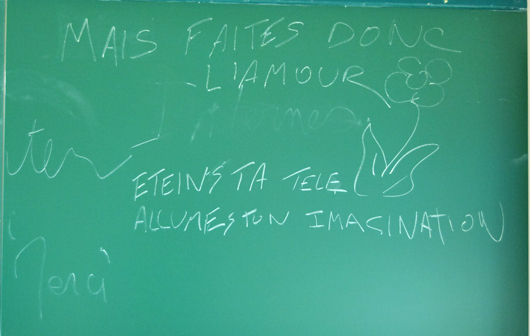 MAIS FAITES DONC
L'AMOUR
ETEINS TA TELE
ALLUMES TON IMAGINATION
Merci